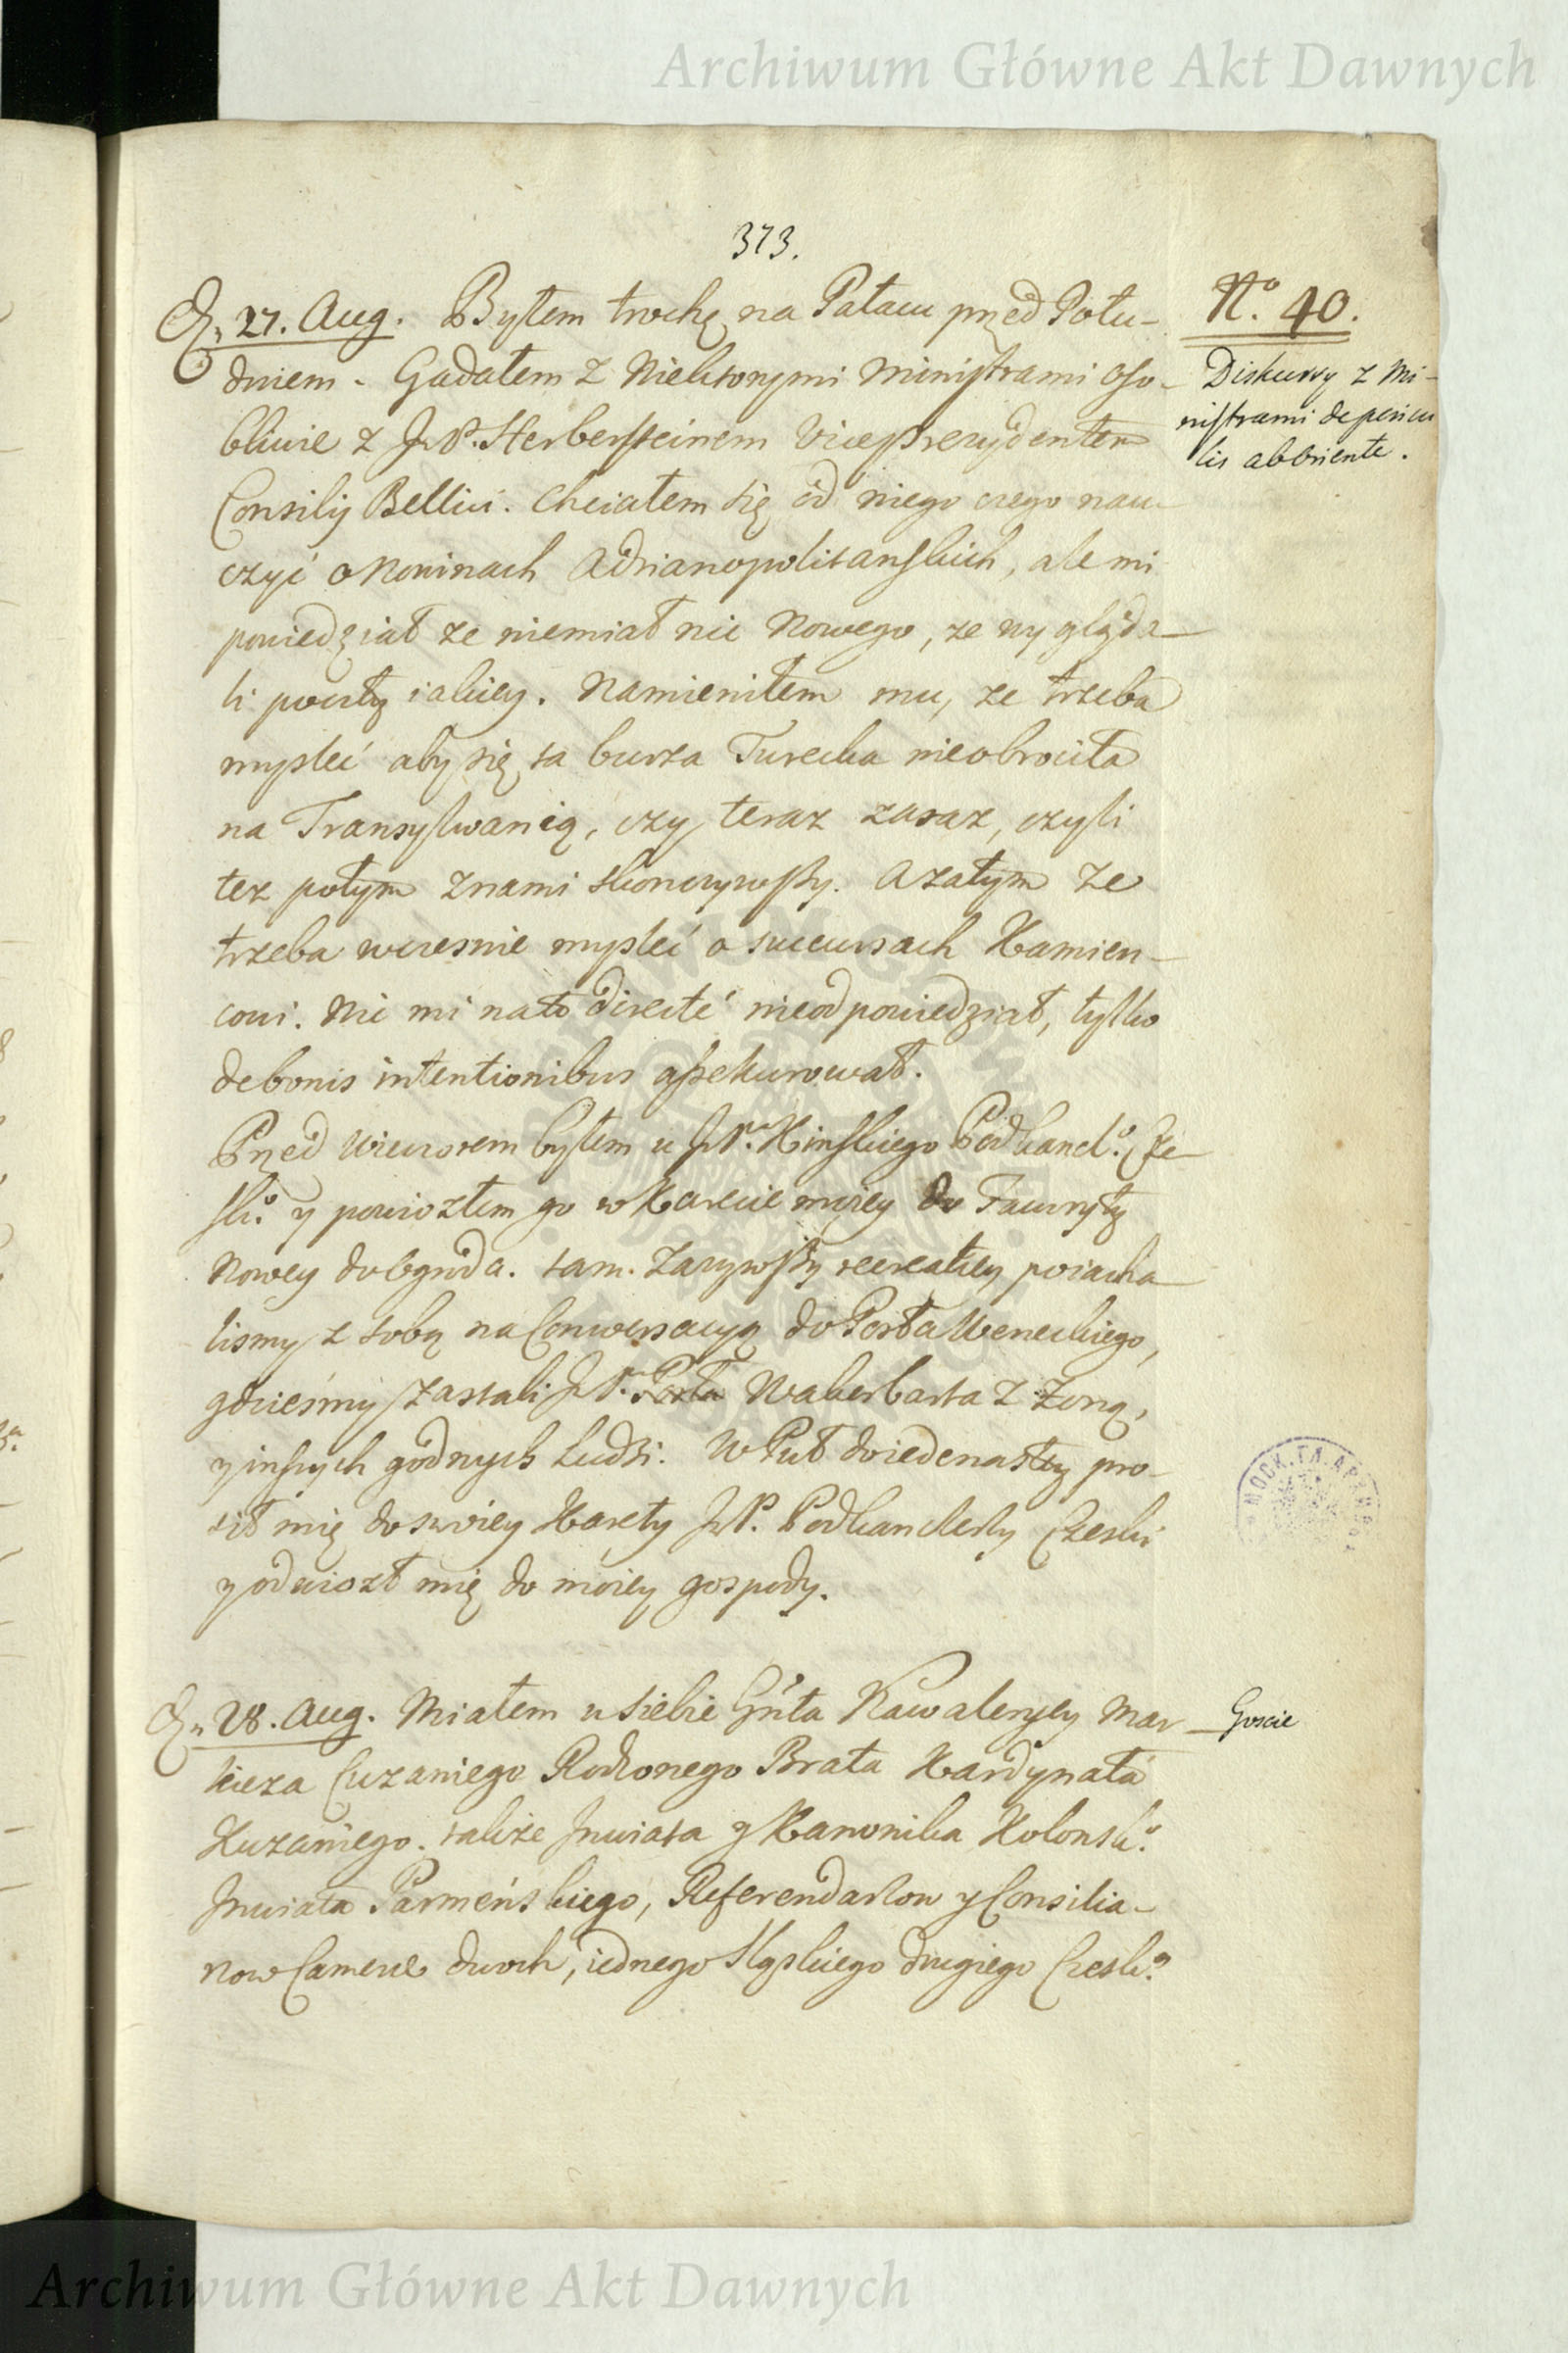 Archiwum Główne Akt Dawnych
373.
27. Aug. Byłem trochę na Pałacu przed Połu-
dniem. Gadałem z Niektorymi Ministrami oso-
bliwie z J. P. Herbersteinem Viceprezydentem
Consilij Bellici. Chciałem się od niego czego nau-
czyć o Nowinach Adrianopolitanskich, ale mi
powiedział ze niemiał nic Nowego, ze wygląda-
li poczty iakiey. Namieniłem mu, ze trzeba
myslec aby się ta burza Turecka nieobrociła
na Transylwanią, czy teraz zaraz, czyli
tez potym z nami skonczywszy. A zatym ze
trzeba wczesnie myslec o succursach Kamien-
cowi. Nic mi na to directe nieodpowiedział, tylko
de bonis intentionibus assekurował.
Przed Wieczorem byłem u J. P. Kinskiego Podkancl.º Cze-
sk.º y powiozłem go w Karecie moiey do Fawryty
Nowey do Ogroda. tam zazywszy recreatiey poiacha
lismy z sobą na Conwersacyą do Posła Weneckiego,
gdziesmy zastali J. P. Posła Wakerbarta z Zoną,
y inszych godnych Ludzi. W Puł do iedenastey pro-
sił mię do swoiey Karety J. P. Podkanclerzy Czeski
y odwiozł mię do moiey gospody.
28. Aug. Miałem u siebie Gńła Kawaleryey Mar-
kieza Cuzaniego Rodzonego Brata Kardynała
Kuzaniego. takze Inviata y Kanonika Kolonsk.º
Inviata Parmeńskiego, Referendarzow y Consilia-
now Camerae dwoch, iednego Sląskiego drugiego Czesk.º
Nº. 40.
Diskursy z Mi-
nistrami de pericu
lis ab Oriente.
Goscie
МОСК. ГЛ. АРХИВ
Archiwum Główne Akt Dawnych